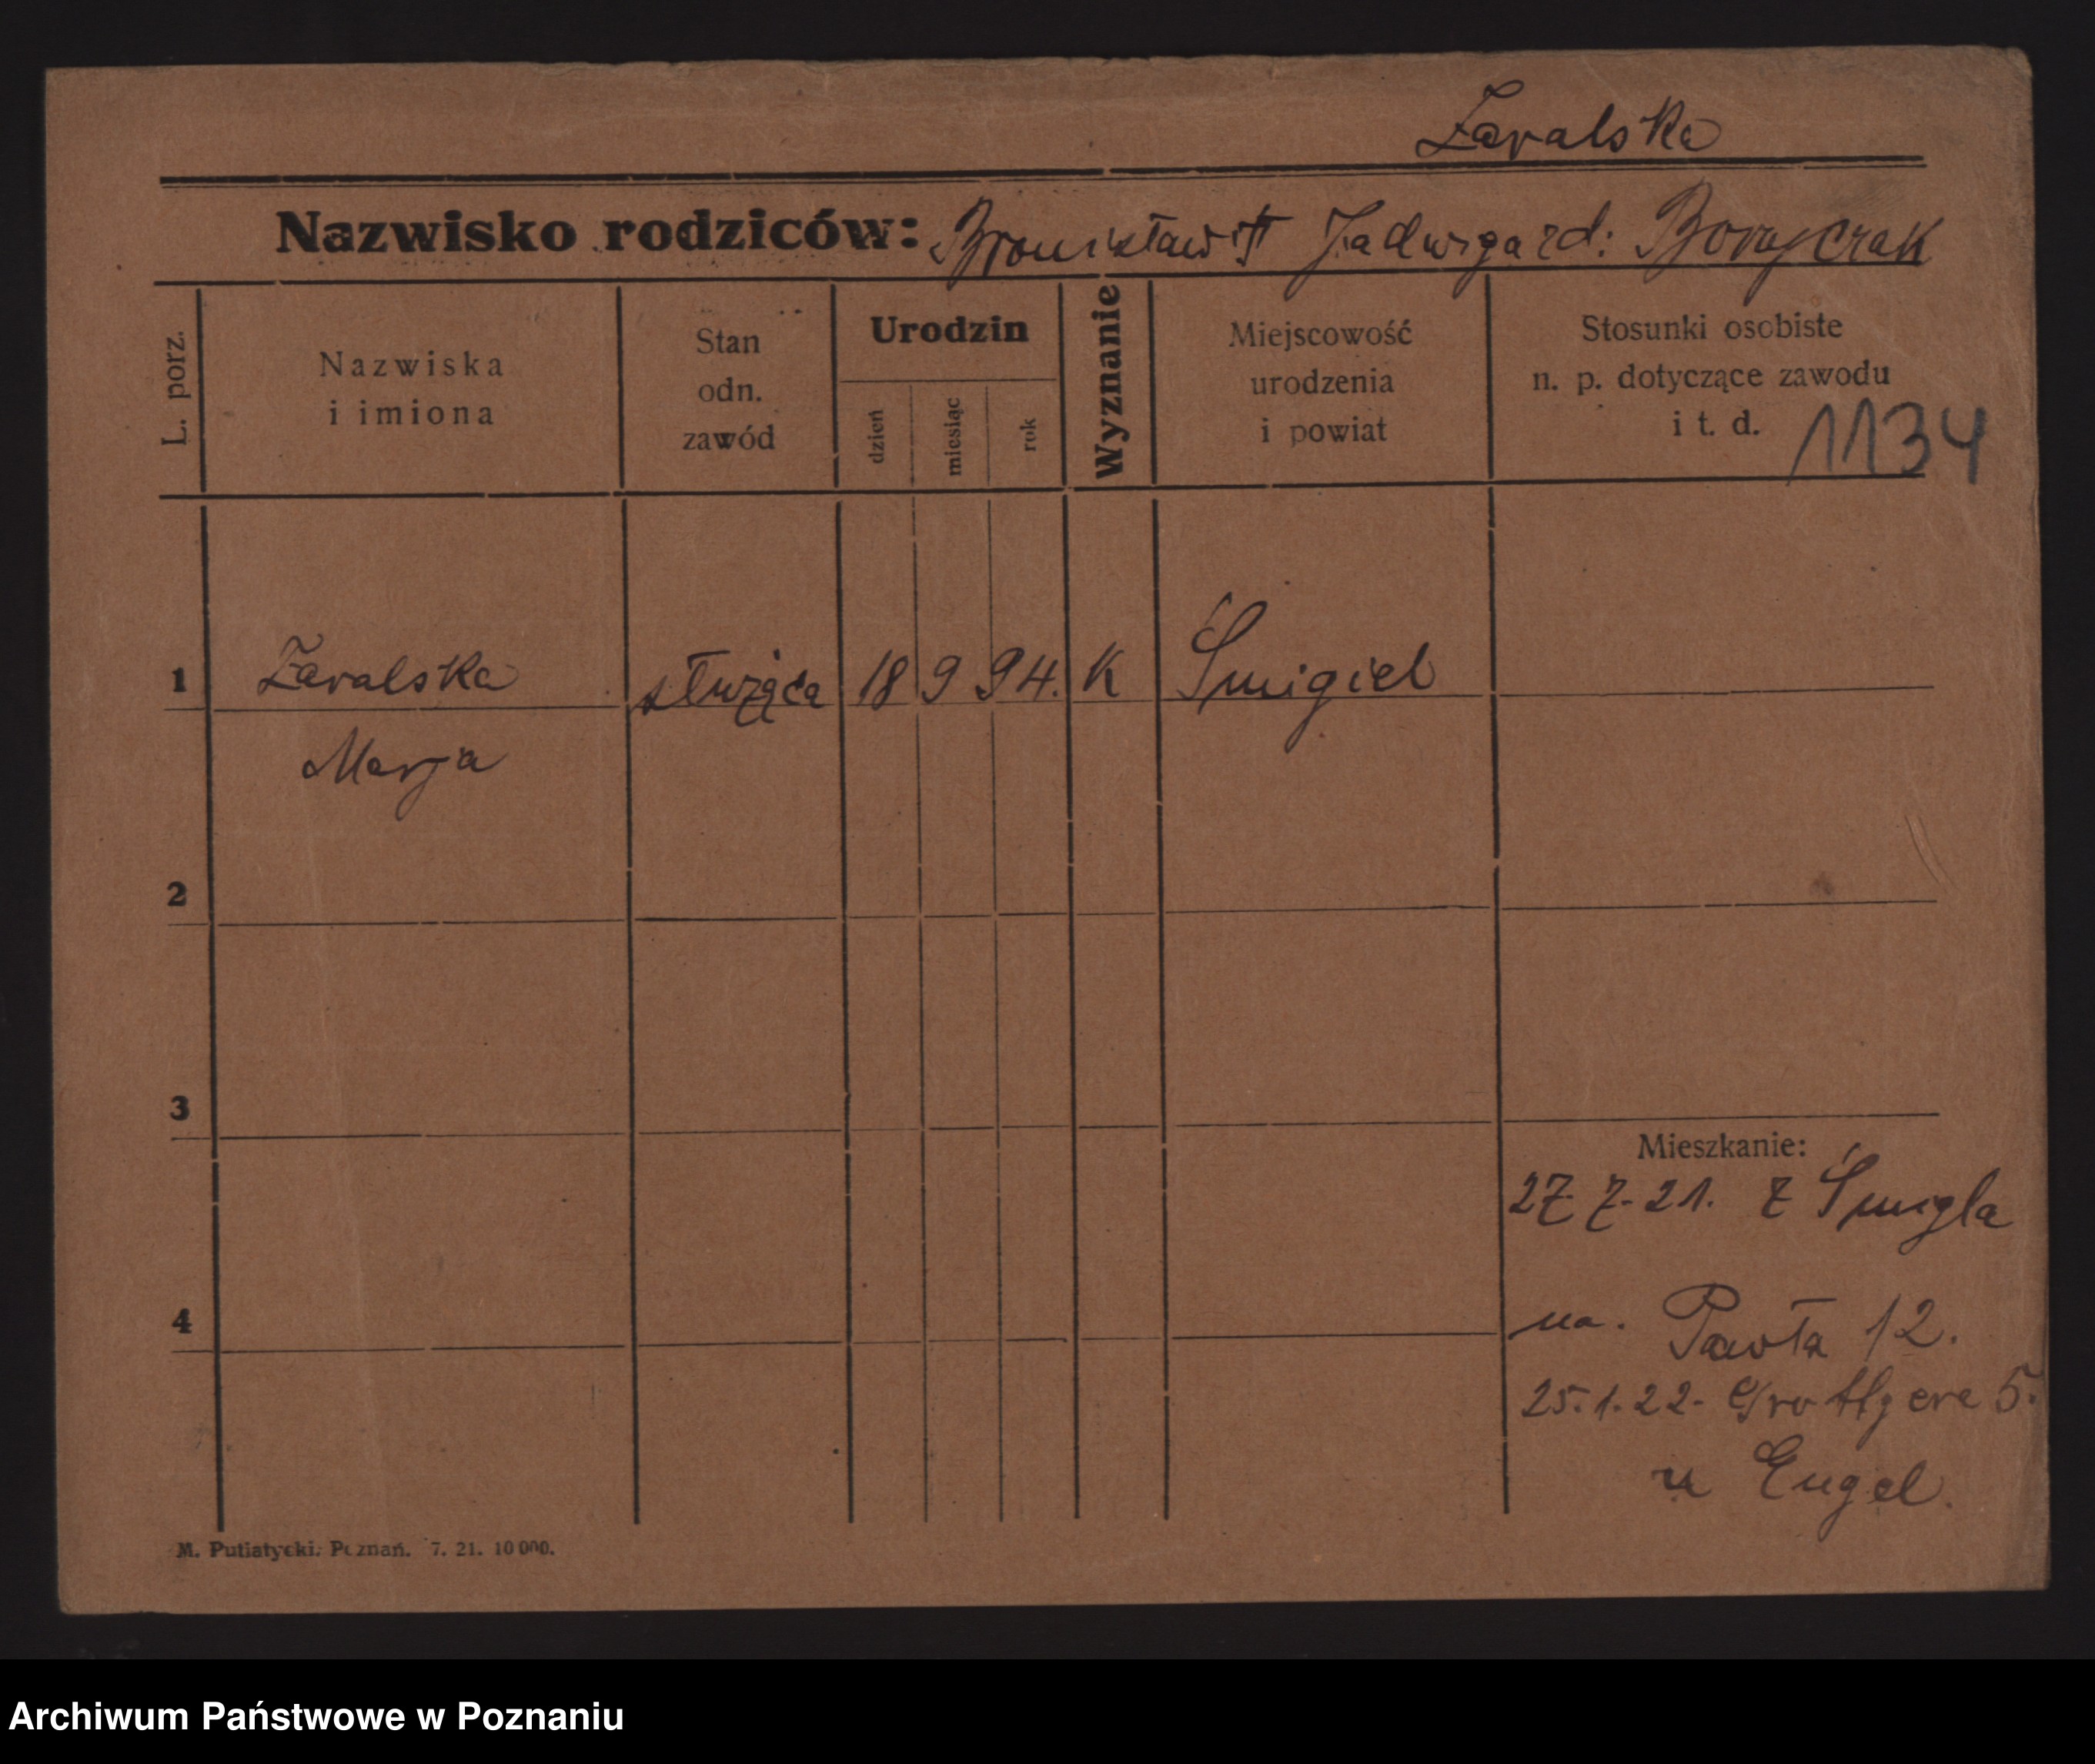 Zaralska
Nazwisko rodziców: Bronisław † Jadwiga zd:
L. porz.
Nazwiska
i imiona
Stan
odn.
zawód
Urodzin
dzień
miesiąc
rok
Wyznanie
Miejscowość
urodzenia
i powiat
Stosunki osobiste
n. p. dotyczące zawodu
i t. d.
1134
1 Zaralska służąca 18 9 94. K Śmigiel
Marja
2
3
Mieszkanie:
27 7. 21. z Śmigla
4
na. Pawła 12.
25. 1. 22. Grottgera 5.
u Engel.
M. Putiatycki. Poznań. 7. 21. 10 000.
Archiwum Państwowe w Poznaniu